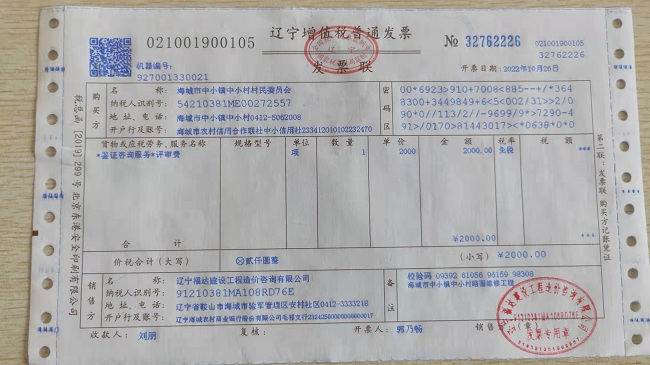 021001900105
辽宁增值税普通发票
发票联
№ 32762226
021001900105
32762226
机器编号:
927001330021
开票日期: 2022年10月26日
税总函[2019]299号北京东港安全印刷有限公司
购买方
名称: 海城市中小镇中小村村民委员会
纳税人识别号: 54210381ME00272557
地址、电话: 海城市中小镇中小村0412-5062008
开户行及账号: 海城市农村信用合作联社中小信用社233412010102232470
密码区
00*6923>910+7008<885--+/*364
8300+3449849+6<5<002/31>>2/0
90*0//113/2//-9699/9*>7290-4
91>/0170>81443017><*0638*0*0
货物或应税劳务、服务名称 规格型号 单位 数量 单价 金额 税率 税额
*鉴证咨询服务*评审费 项 1 2000 2000.00 免税 ***
合计 ¥2000.00 ***
价税合计(大写) ⊗贰仟圆整 (小写) ¥2000.00
销售方
名称: 辽宁福达建设工程造价咨询有限公司
纳税人识别号: 91210381MA108RD76E
地址、电话: 辽宁省鞍山市海城市验军管理区安村社区0412-3333218
备注
校验码 09392 61056 96159 98308
海城市中小镇中小村路面维修工程
收款人: 刘丽
复核:
开票人: 郭乃畅
销售
91210381MA108RD76E
发票专用章
第二联:发票联 购买方记账凭证